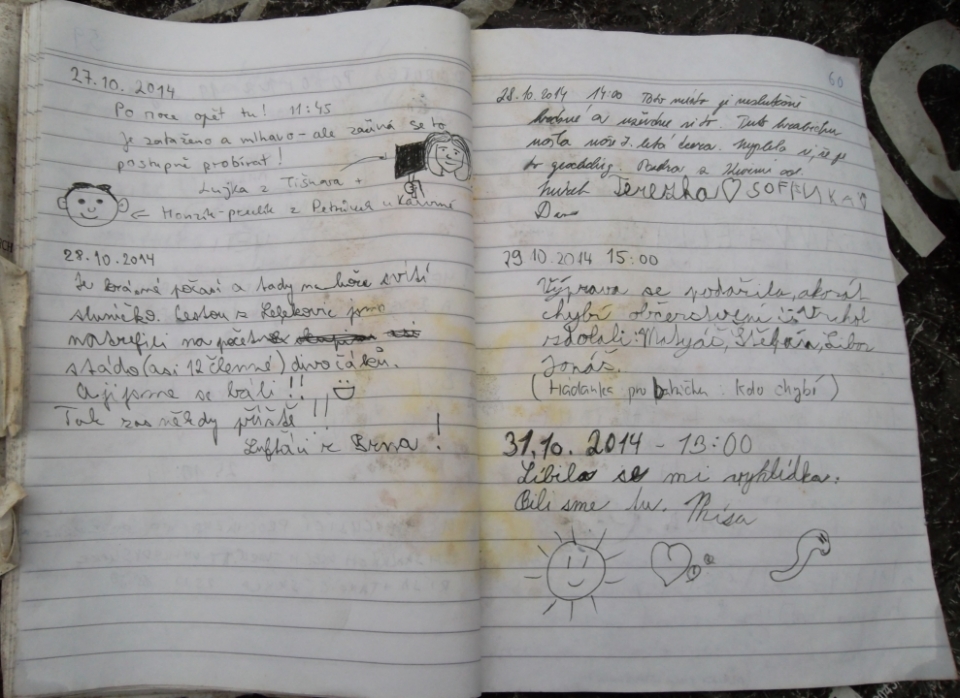 27.10. 2014
Po roce opět tu! 11:45
Je zataženo a mlhavo - ale začíná se to
postupně probírat!
z Tišnova +
← Honzík - z
28.10.2014
Je krásné počasí a tady na hoře svítí
sluníčko. Cestou z Lelekovic jsme
natrefili na početné
stádo (asi 12 členné) divočáků.
Aji jsme se báli!!
Tak zas někdy příště!!
z Brna!
60
28.10.2014 14:00 Toto místo je neskutečně
krásné a užíváme si to. Tuto
našla naše letá dcera. si, že je
to
Terezka ♡ SOFINKA ♡
29.10.2014 15:00
Výprava se podařila, akorát
chybí občerstvení. Vrchol
zdolali: Matyáš, Štěpán, Libor
Jonáš.
(Hádanka pro babičku: kdo chybí)
31.10. 2014 - 13:00
Líbila se mi vyhlídka.
Bili sme tu. Míša